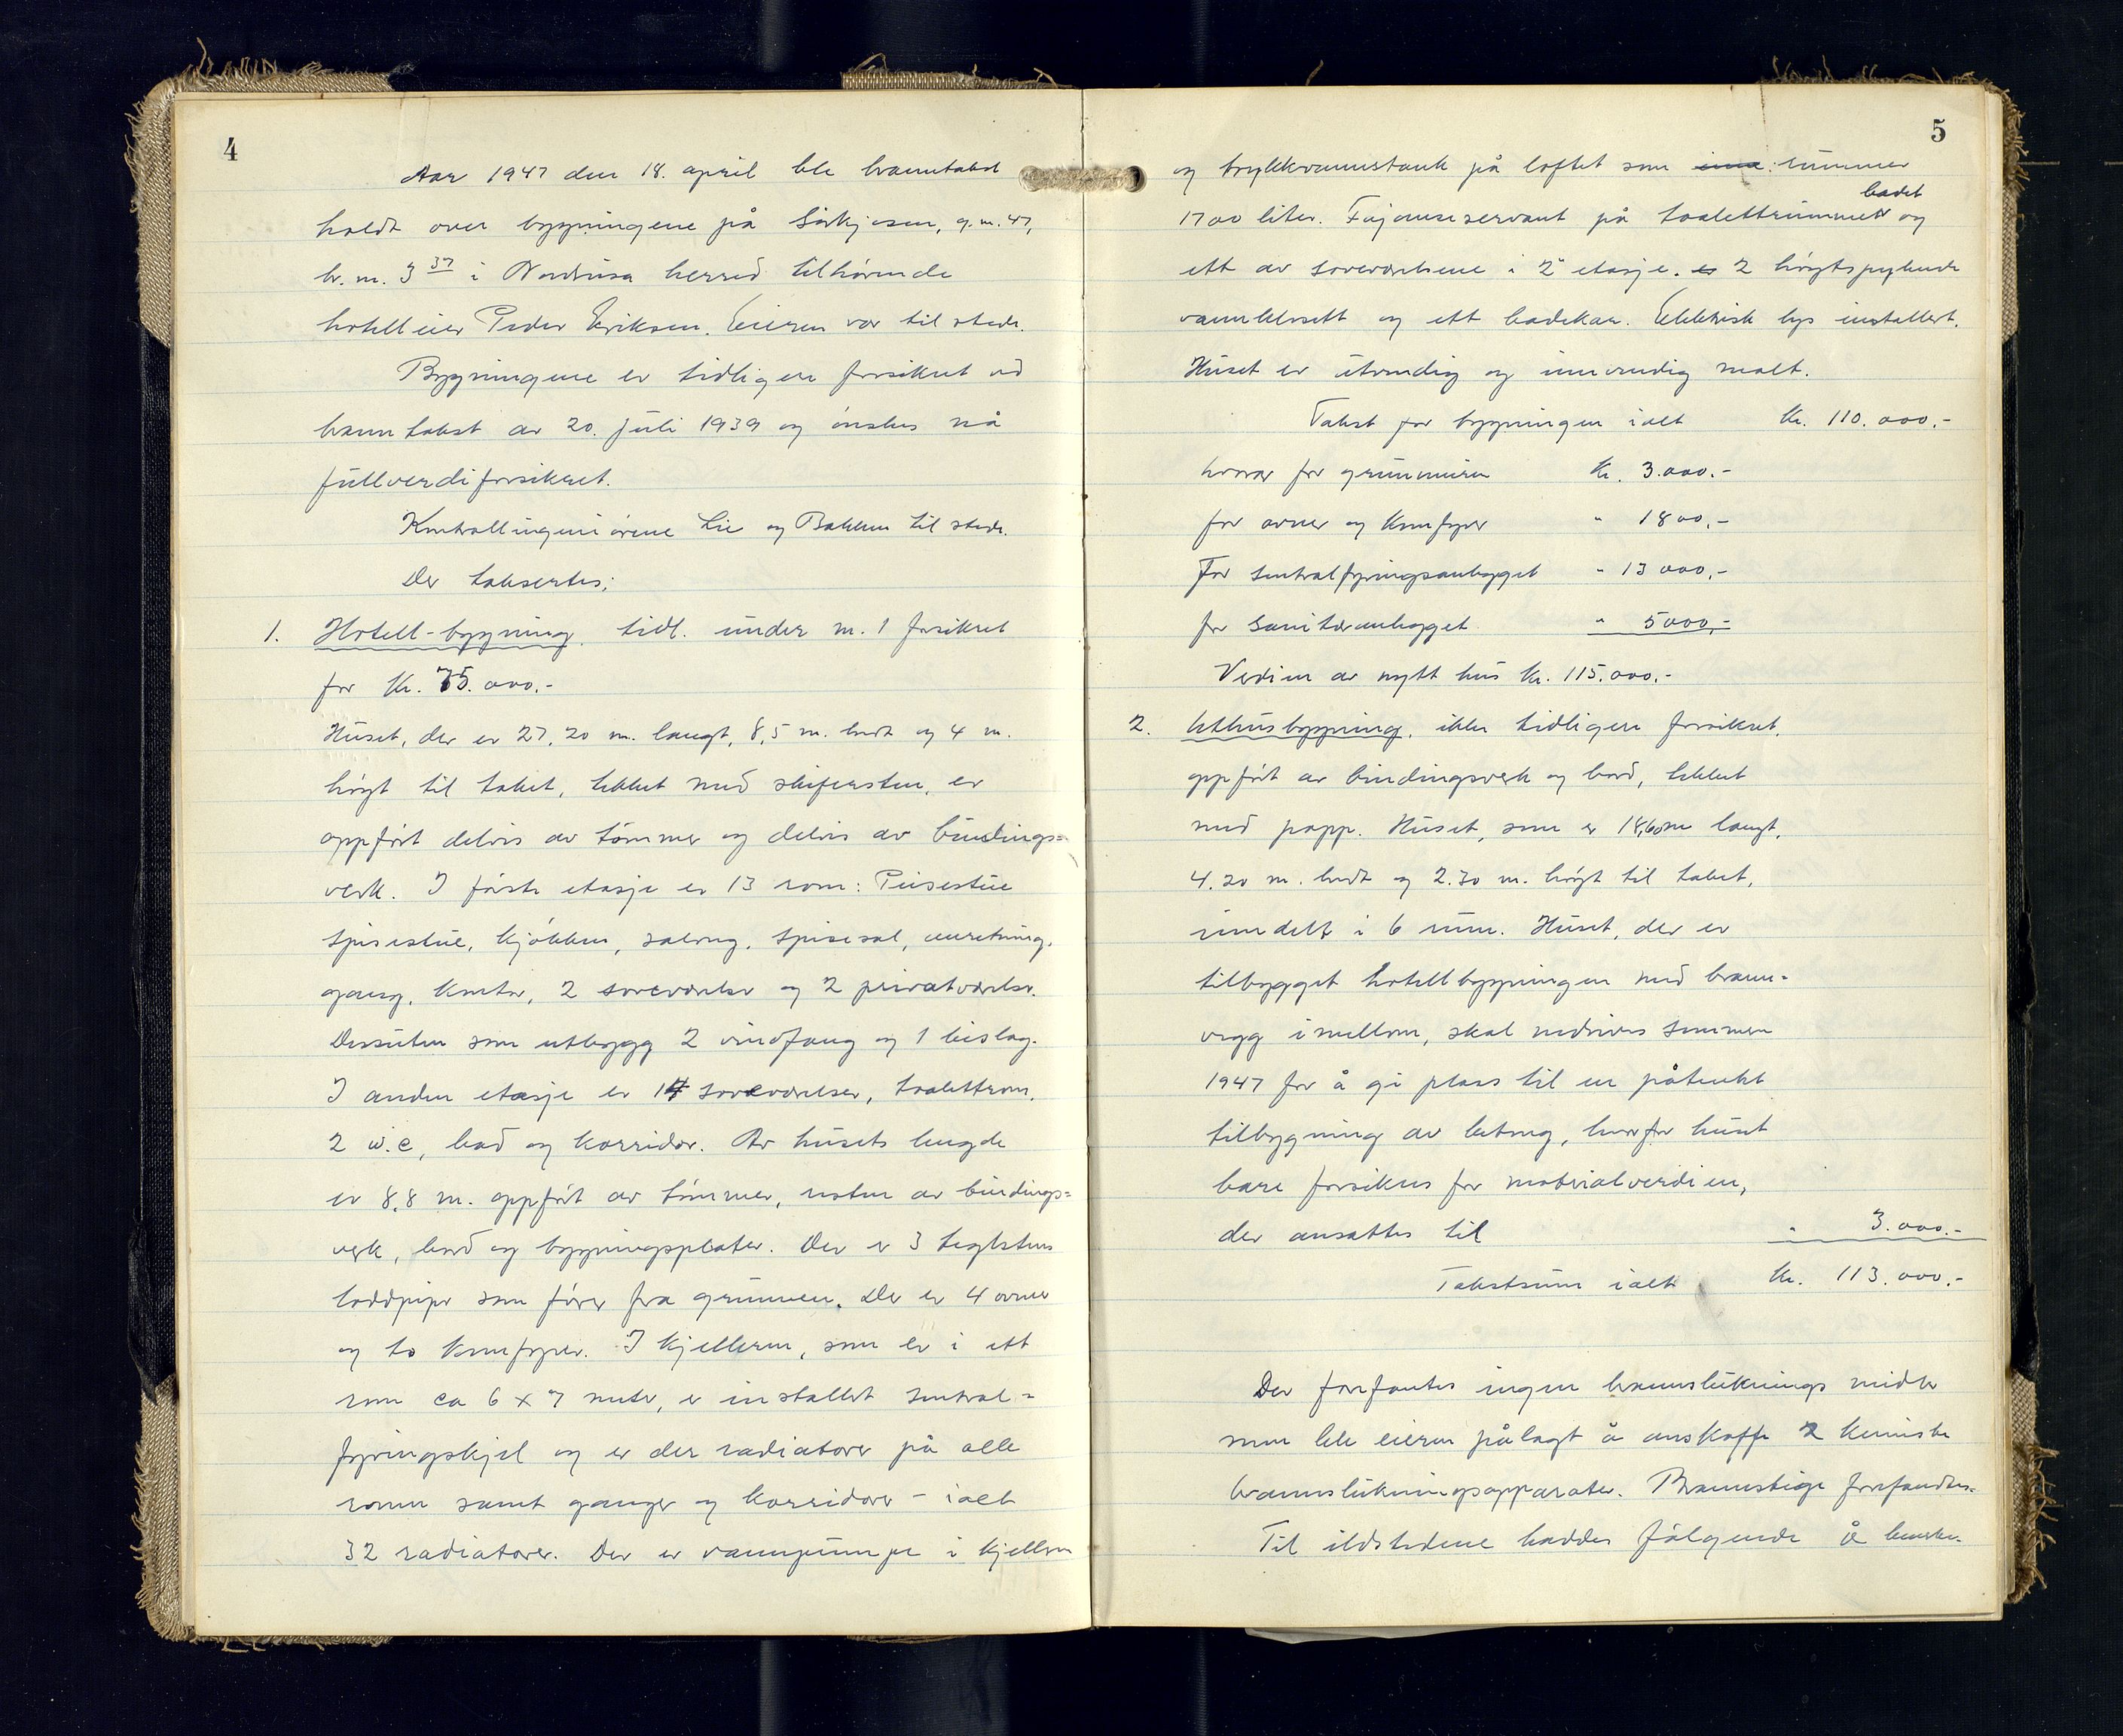 4
Aar 1947 den 18. april ble branntakst
holdt over bygningene på Sørkjosen, g.nr. 47,
br.nr. 3 37 i Nordreisa herred tilhørende
hotelleier Peder Eriksen. Eieren var til stede.
Bygningene er tidligere forsikret ved
branntakst av 20. juli 1939 og ønskes nå
fullverdiforsikret.
Kontrollingeniørene Lie og Bakken til stede.
Der taksertes:
1. Hotell-bygning, tidl. under nr. 1 forsikret
for kr. 75.000.-
Huset, der er 27,20 m. langt, 8,5 m. bredt og 4 m.
högt til taket, tekket med skifersten, er
oppført delvis av tømmer og delvis av bindings=
verk. I første etasje er 13 rom: Peisestue
spisestue, kjøkken, salong, spisesal, anretning,
gang, kontor, 2 soveværelser og 2 privatværelser.
Dessuten som utbygg 2 vindfang og 1 bislag.
I anden etasje er 14 soveværelser, toalettrom,
2 w.c, bad og korridor. Av husets lengde
er 8,8 m. oppført av tømmer, resten av bindings=
verk, bord og bygningsplater. Der er 3 teglstens
loddpiper som fører fra grunnen. Der er 4 ovner
og to komfyrer. I kjelleren, som er i ett
rom ca 6 x 7 meter, er installert sentral=
fyringskjel og er der radiatorer på alle
rommen samt ganger og korridorer - ialt
32 radiatorer. Der er vannpumpe i kjelleren
5
og trykkvannstank på loftet som rummer
1700 liter. Fajanseservant på toalettrummet badet og
ett av soveværelsene i 2 etasje. 2 högtspylende
vannklosett og ett badekar. Elektrisk lys installert.
Huset er utvendig og innvendig malt.
Takst for bygningen ialt kr. 110.000.-
hvorav for grunnmuren kr. 3.000.-
for ovner og komfyrer " 1800.-
For sentralfyringsanlegget " 13000.-
for sanitæranlegget " 5000.-
Verdien av nytt hus kr. 115.000.-
2. Uthusbygning, ikke tidligere forsikret,
oppført av bindingsverk og bord, tekket
med papp. Huset, som er 18,60m langt,
4.20 m. bredt og 2.30 m. högt til taket,
inndelt i 6 rum. Huset, der er
tilbygget hotellbygningen med brann-
vegg imellom, skal nedrives sommeren
1947 for å gi plass til en påtenkt
tilbygning av betong, hvorfor huset
bare forsikres for materialverdien,
der ansattes til " 3.000.-
Takstsum ialt kr. 113.000.-
Der forefantes ingen brannsluknings midler
men ble eieren pålagt å anskaffe 2 kemiske
brannslukningsapparater. Brannstige forefandtes.
Til ildstedene haddes følgende å bemerke.